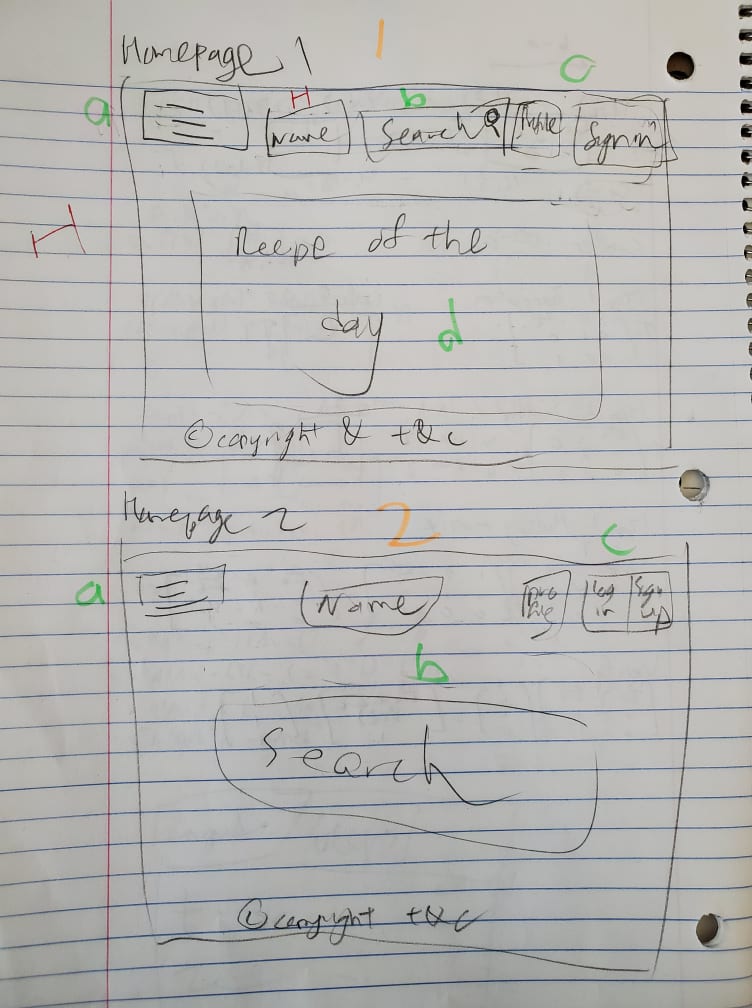 Homepage 1
1
a
H
b
C
Name
Search
Profile
Sign in
H
Recipe of the
day
d
© copyright & t&c
Homepage 2
2
c
a
Name
Log in
Sign up
b
Search
© copyright t&c